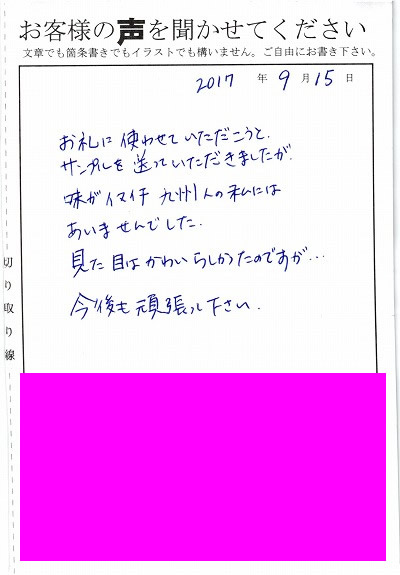 お客様の声を聞かせてください
文章でも箇条書きでもイラストでも構いません。ご自由にお書き下さい。
2017 年 9 月 15 日
お礼に使わせていただこうと、
サンプルを送っていただきましたが、
味がイマイチ 九州人の私には
あいませんでした。
見た目はかわいらしかったのですが…
今後も頑張って下さい。
切り取り線